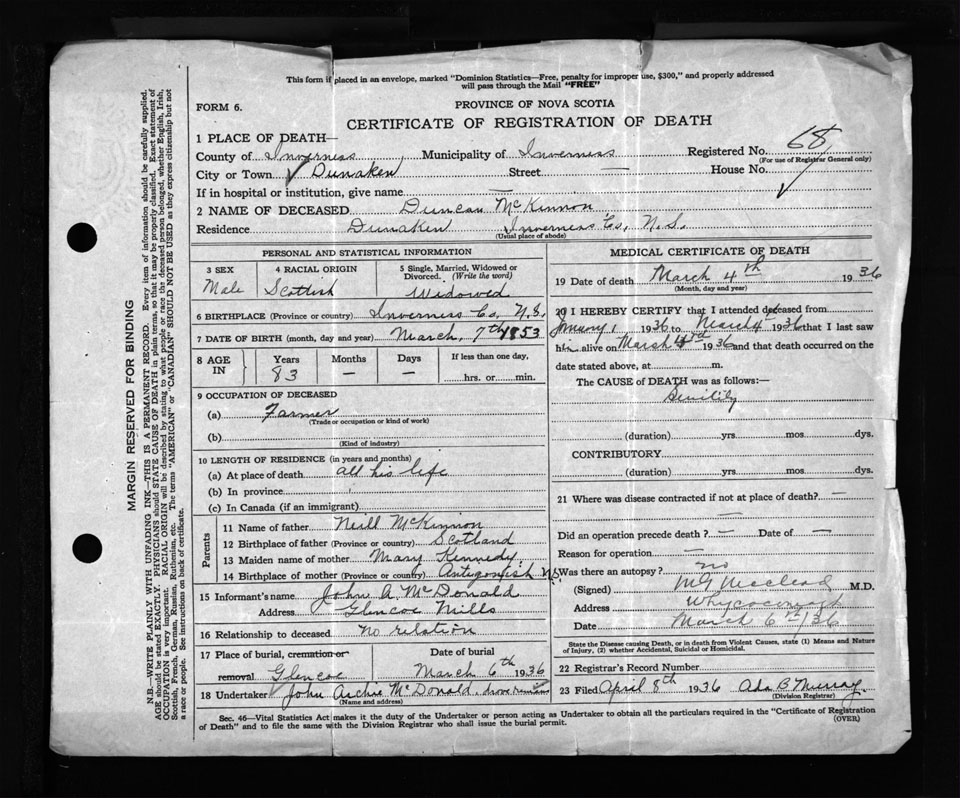 This form if placed in an envelope, marked "Dominion Statistics—Free, penalty for improper use, $300," and properly addressed
will pass through the Mail "FREE"
FORM 6.
PROVINCE OF NOVA SCOTIA
CERTIFICATE OF REGISTRATION OF DEATH
1 PLACE OF DEATH—
County of Inverness Municipality of Inverness Registered No. 68
(For use of Registrar General only)
City or Town Dunaken Street — House No.
If in hospital or institution, give name —
2 NAME OF DECEASED Duncan McKinnon
Residence Dunaken Inverness Co, N.S.
(Usual place of abode)
PERSONAL AND STATISTICAL INFORMATION
3 SEX 4 RACIAL ORIGIN 5 Single, Married, Widowed or
Divorced. (Write the word)
Male Scottish Widowed
6 BIRTHPLACE (Province or country) Inverness Co, N.S.
7 DATE OF BIRTH (month, day and year) March, 7th 1853
8 AGE IN Years Months Days If less than one day,
83 — — hrs. or min.
9 OCCUPATION OF DECEASED
(a) Farmer
(Trade or occupation or kind of work)
(b)
(Kind of industry)
10 LENGTH OF RESIDENCE (in years and months)
(a) At place of death all his life
(b) In province
(c) In Canada (if an immigrant)
Parents
11 Name of father Neill McKinnon
12 Birthplace of father (Province or country) Scotland
13 Maiden name of mother Mary Kennedy
14 Birthplace of mother (Province or country) Antigonish N.S.
15 Informant's name John A McDonald
Address Glencoe Mills
16 Relationship to deceased No relation
17 Place of burial, cremation or Date of burial
removal Glencoe March 6th 1936
18 Undertaker John Archie McDonald,
(Name and address)
MEDICAL CERTIFICATE OF DEATH
19 Date of death March 4th 1936
(Month, day and year)
20 I HEREBY CERTIFY that I attended deceased from
January 1 1936 to March 4 1936 that I last saw
him alive on March 4th 1936 and that death occurred on the
date stated above, at m.
The CAUSE of DEATH was as follows:—
Senility
(duration) yrs. mos. dys.
CONTRIBUTORY
(duration) yrs. mos. dys.
21 Where was disease contracted if not at place of death? —
—
Did an operation precede death? — Date of —
Reason for operation —
Was there an autopsy? no
(Signed) M G Mcleod M.D.
Address Whycocomagh
Date March 6th/36
State the Disease causing Death, or in death from Violent Causes, state (1) Means and Nature
of Injury, (2) whether Accidental, Suicidal or Homicidal.
22 Registrar's Record Number
23 Filed April 8th 1936 Ada B Murray.
(Division Registrar)
Sec. 46—Vital Statistics Act makes it the duty of the Undertaker or person acting as Undertaker to obtain all the particulars required in the "Certificate of Registration
of Death" and to file the same with the Division Registrar who shall issue the burial permit.
(OVER)
MARGIN RESERVED FOR BINDING
N.B.—WRITE PLAINLY WITH UNFADING INK—THIS IS A PERMANENT RECORD. Every item of information should be carefully supplied.
AGE should be stated EXACTLY. PHYSICIANS should STATE CAUSE OF DEATH in plain terms, so that it may be properly classified. Exact statement of
OCCUPATION is very important. RACIAL ORIGIN will be described by stating to what people or race the deceased person belonged, whether English, Irish,
Scottish, French, German, Russian, Ruthenian, etc. The terms "AMERICAN" or "CANADIAN" SHOULD NOT BE USED as they express citizenship but not
a race or people. See instructions on back of certificate.